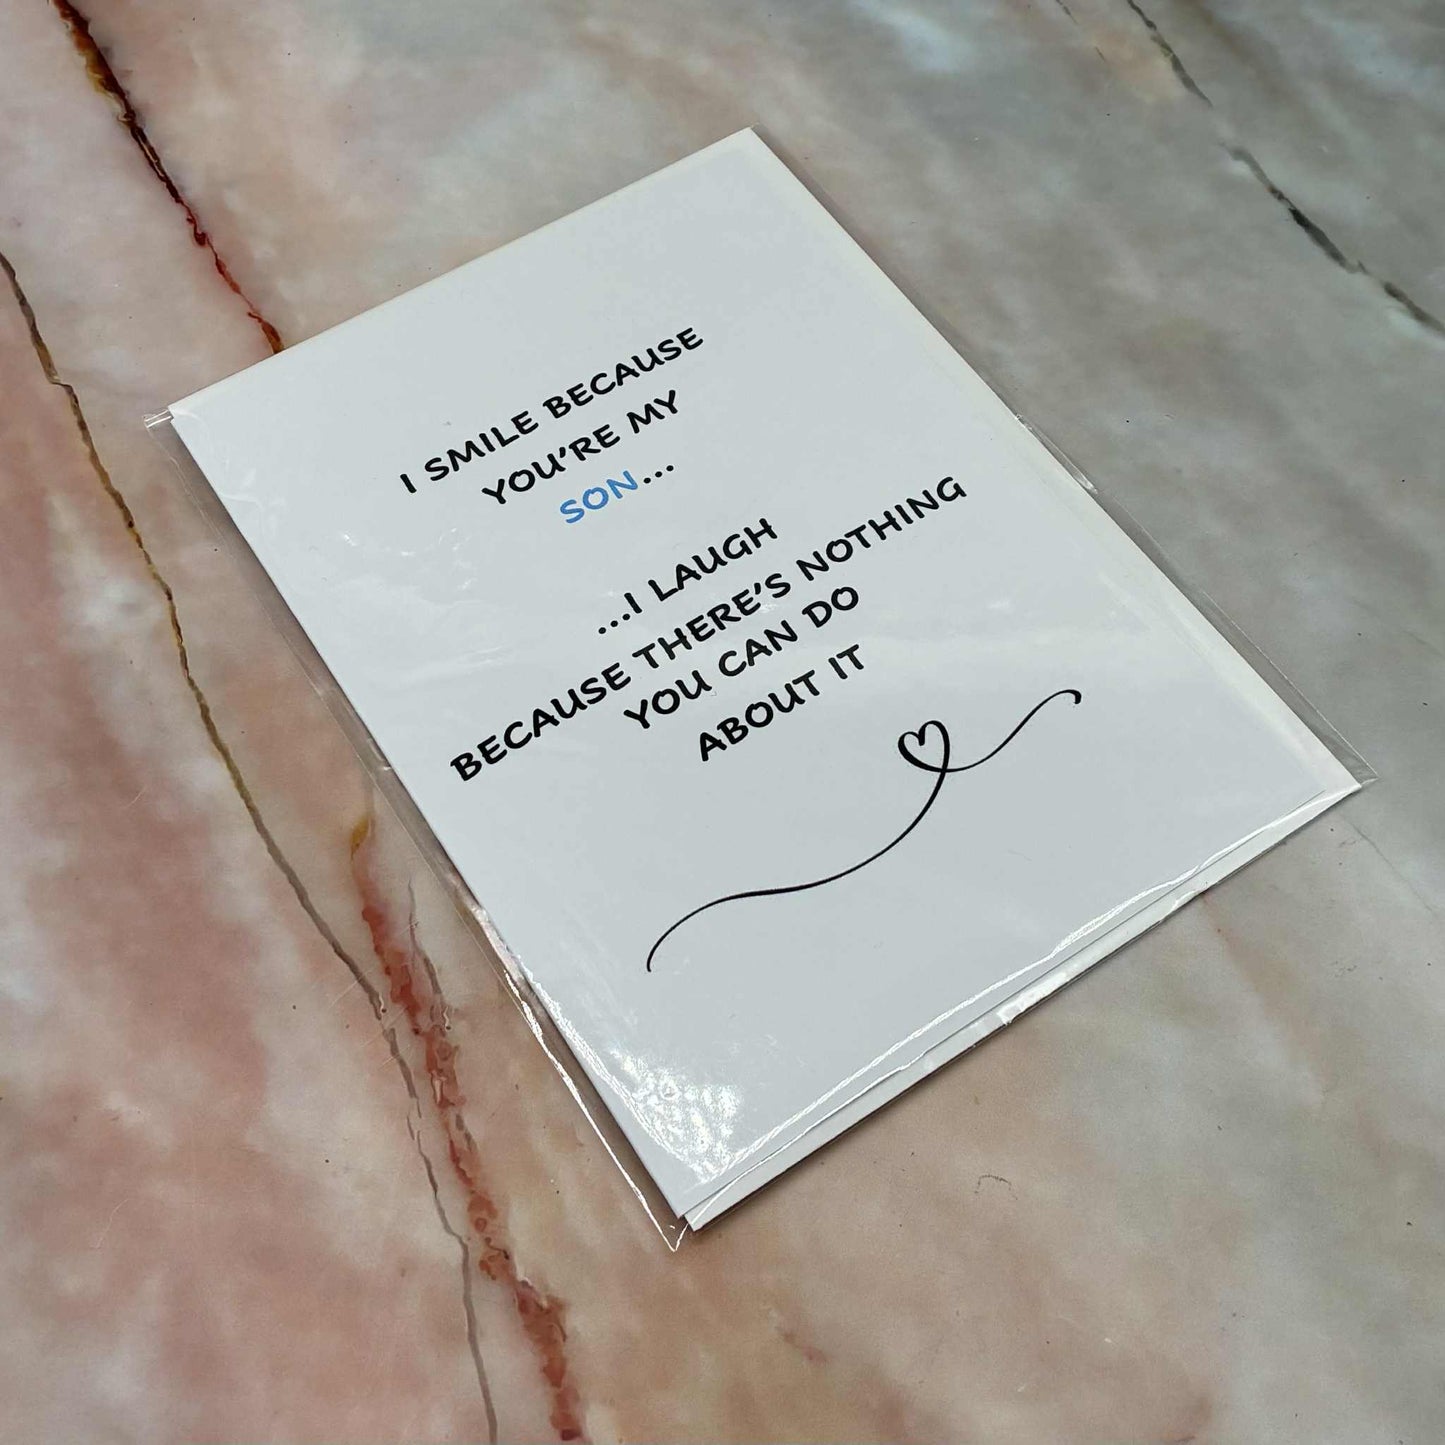 I SMILE BECAUSE
YOU'RE MY
SON...
...I LAUGH
BECAUSE THERE'S NOTHING
YOU CAN DO
ABOUT IT